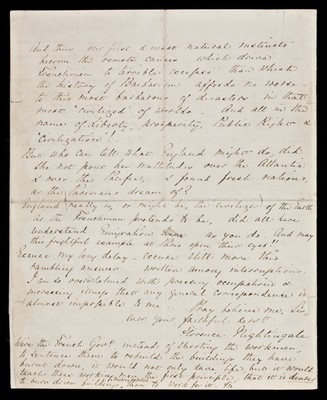 And thus our first & most natural instincts
become the remote causes which drive
Frenchmen to terrible excesses than which
the history of Barbarism affords no worse -
to this most barbarous of disasters in that
most "civilized" of worlds. And all in the
names of Liberty, prosperity, Public Right &
"Civilization"!
But who can tell what England might do, did
she not pour her multitudes over the Atlantic
& over the Pacific, & found fresh nations,
as the Germans dream of?
England really is, or might be, the civilizer of the Earth
as the Frenchman pretends to be, did all here
understand Emigration as you do And may
this frightful example at Paris open their eyes!!
Excuse my long delay - excuse still more this
rambling answer written among interruptions.
I am so overwhelmed with pressing occupations &
increasing illness that any general correspondence is
almost impossible to me. Pray believe me, Sir,
ever your faithful servt
Florence Nightingale
Were the French Govt, instead of shooting the workmen,
to sentence them to rebuild the buildings they have
burnt down, it would not only save life, but it would
teach these working men the first principle, that it is easier
to burn down buildings than to work for it. FN